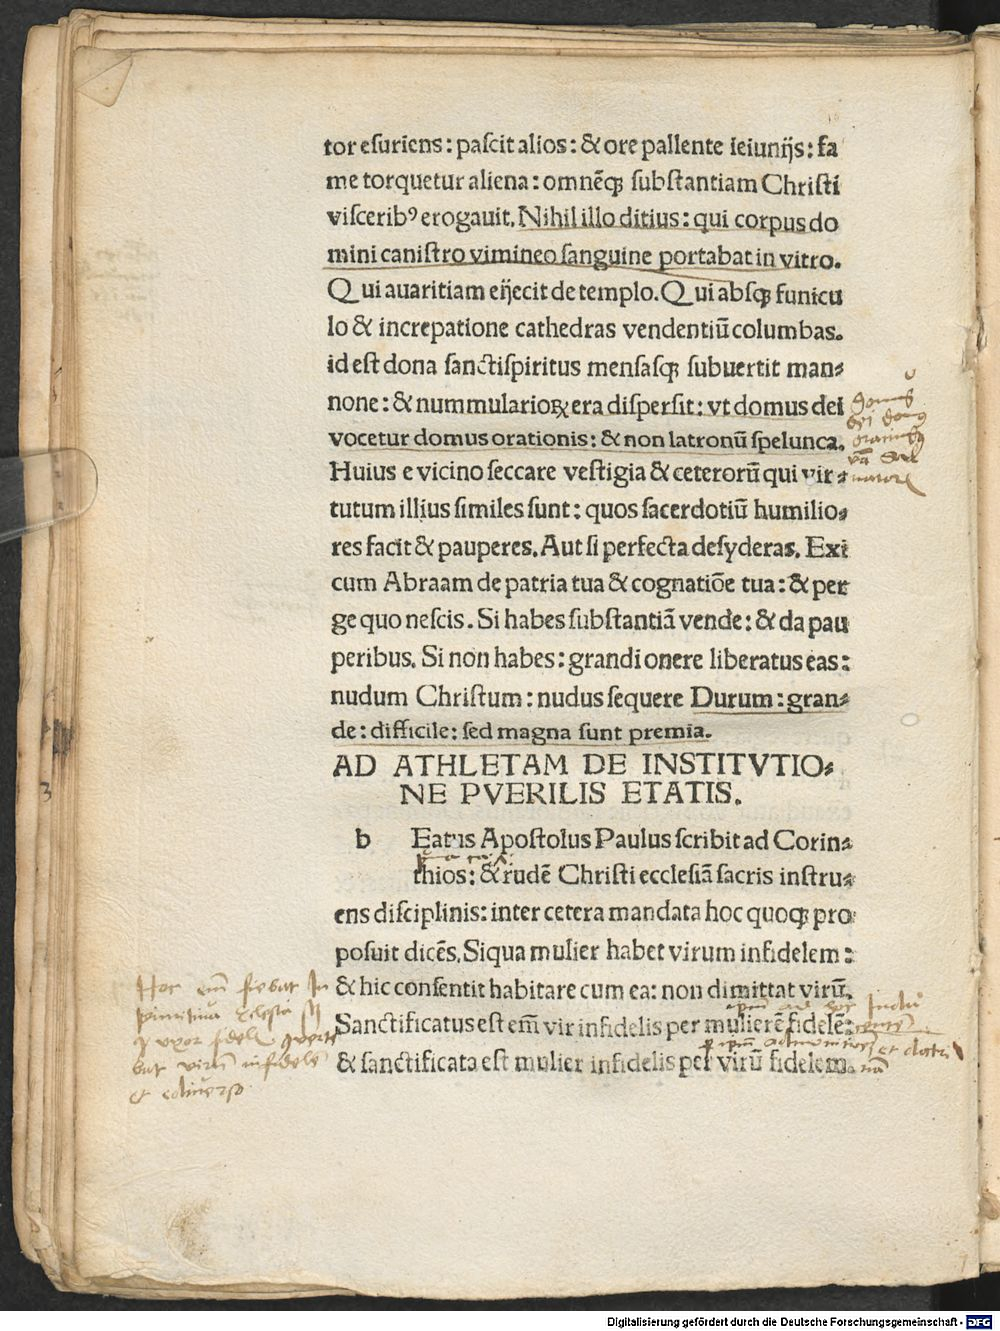 tor esuriens: pascit alios: & ore pallente ieiunijs: fa
me torquetur aliena: omnēqꝫ substantiam Christi
viscerib⁹ erogauit. Nihil illo ditius: qui corpus do
mini canistro vimineo sanguine portabat in vitro.
Qui auaritiam eijecit de templo. Qui absqꝫ funicu
lo & increpatione cathedras vendentiū columbas.
id est dona sanctispiritus mensasqꝫ subuertit man⸗
none: & nummularioꝝ era dispersit: vt domus dei
vocetur domus orationis: & non latronū spelunca.
Huius e vicino seccare vestigia & ceterorū qui vir⸗
tutum illius similes sunt: quos sacerdotiū humilio⸗
res facit & pauperes. Aut si perfecta desyderas. Exi
cum Abraam de patria tua & cognatiōe tua: & per
ge quo nescis. Si habes substantiā vende: & da pau
peribus. Si non habes: grandi onere liberatus eas:
nudum Christum: nudus sequere Durum: gran⸗
de: difficile: sed magna sunt premia.
AD ATHLETAM DE INSTITVTIO⸗
NE PVERILIS ETATIS.
b Eatus Apostolus Paulus scribit ad Corin⸗
thios: & rudē Christi ecclesiā sacris instru⸗
ens disciplinis: inter cetera mandata hoc quoqꝫ pro
posuit dicēs. Siqua mulier habet virum infidelem:
& hic consentit habitare cum ea: non dimittat virū.
Sanctificatus est em̄ vir infidelis per mulierē fidelē:
& sanctificata est mulier infidelis per virū fidelem.
domus
dei
Hoc em̄ fiebat In
primitiua Ecclesia
uxor fidelis
bat virum infidelē
et
Digitalisierung gefördert durch die Deutsche Forschungsgemeinschaft - DFG